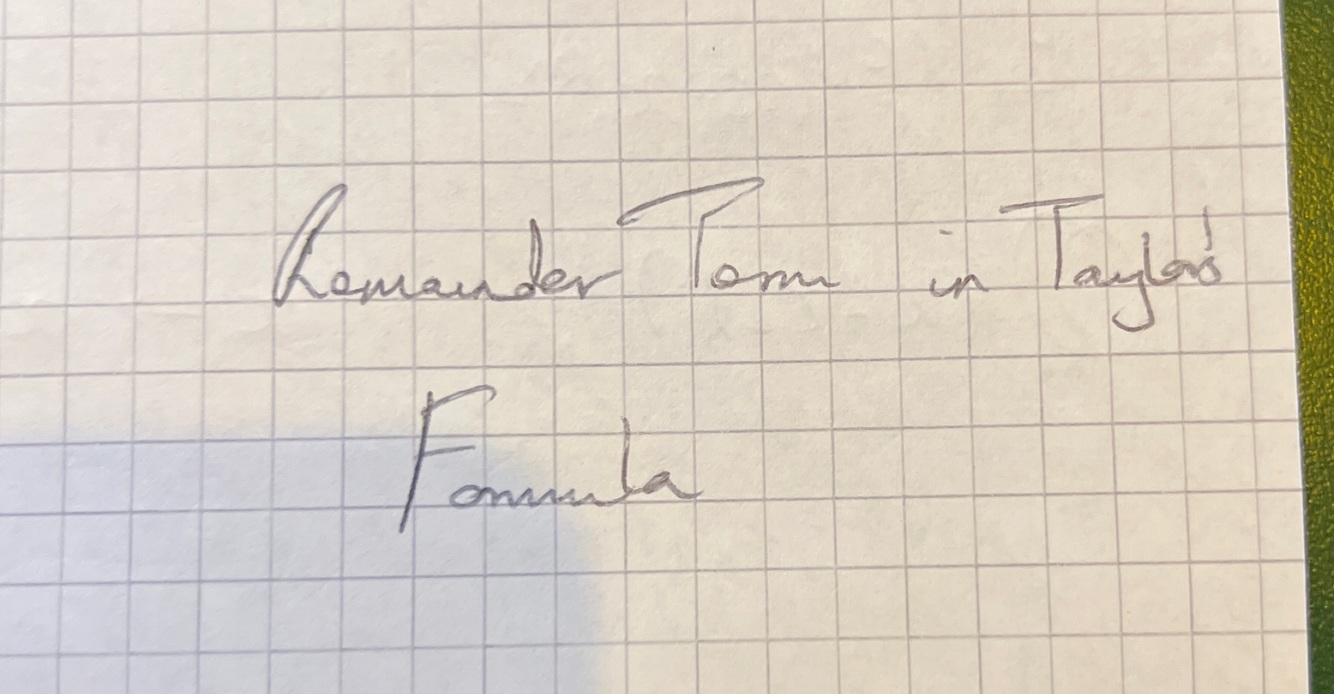 Remainder Term in Taylor's
Formula